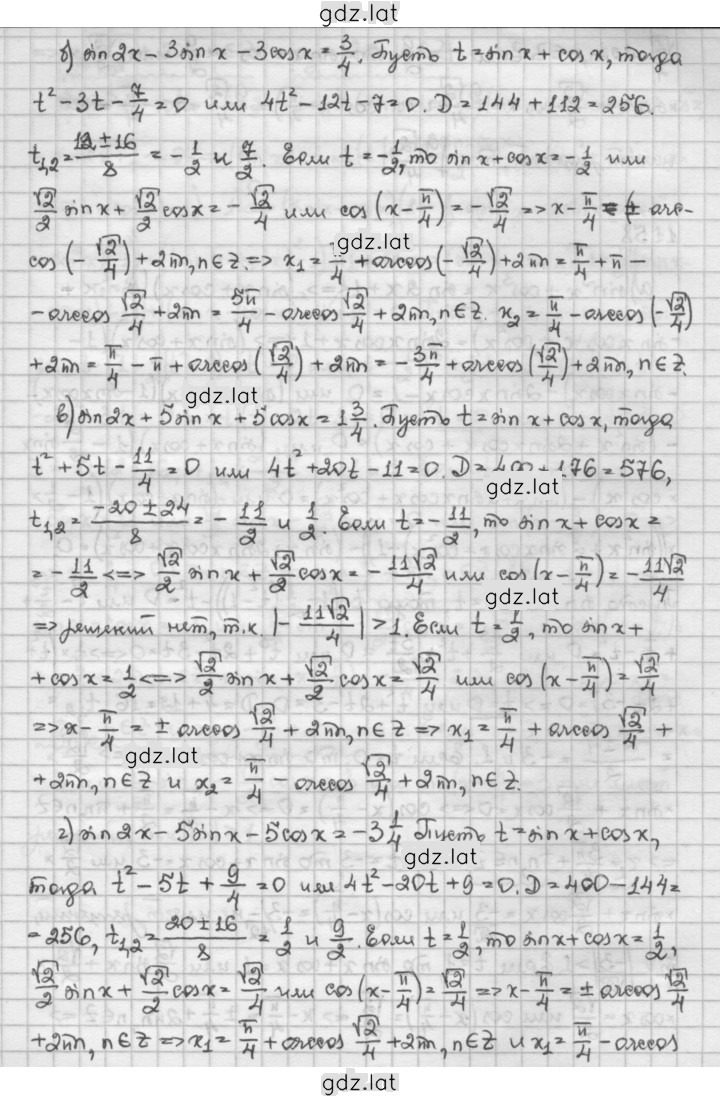 gdz.lat
б) sin2x − 3sinx − 3cosx = 3/4. Пусть t = sinx + cosx, тогда
t² − 3t − 7/4 = 0 или 4t² − 12t − 7 = 0. D = 144 + 112 = 256.
t₁,₂ = (12 ± 16)/8 = −1/2 и 7/2. Если t = −1/2, то sinx + cosx = −1/2 или
√2/2 sinx + √2/2 cosx = −√2/4 или cos(x − π/4) = −√2/4 => x − π/4 = ± arc-
gdz.lat
cos(−√2/4) + 2πn, n∈Z. => x₁ = π/4 + arccos(−√2/4) + 2πn = π/4 + π −
− arccos √2/4 + 2πn = 5π/4 − arccos √2/4 + 2πn, n∈Z. x₂ = π/4 − arccos(−√2/4)
+ 2πn = π/4 − π + arccos(√2/4) + 2πn = −3π/4 + arccos(√2/4) + 2πn, n∈Z.
gdz.lat
в) sin2x + 5sinx + 5cosx = 1 3/4. Пусть t = sinx + cosx, тогда
t² + 5t − 11/4 = 0 или 4t² + 20t − 11 = 0. D = 400 + 176 = 576,
gdz.lat
t₁,₂ = (−20 ± 24)/8 = −11/2 и 1/2. Если t = −11/2, то sinx + cosx =
= −11/2 <=> √2/2 sinx + √2/2 cosx = −11√2/4 или cos(x − π/4) = −11√2/4
gdz.lat
=> решений нет, т.к. |−11√2/4| > 1. Если t = 1/2, то sinx +
+ cosx = 1/2 <=> √2/2 sinx + √2/2 cosx = √2/4 или cos(x − π/4) = √2/4
=> x − π/4 = ± arccos √2/4 + 2πn, n∈Z => x₁ = π/4 + arccos √2/4 +
gdz.lat
+ 2πn, n∈Z и x₂ = π/4 − arccos √2/4 + 2πn, n∈Z.
г) sin2x − 5sinx − 5cosx = −3 1/4. Пусть t = sinx + cosx,
gdz.lat
тогда t² − 5t + 9/4 = 0 или 4t² − 20t + 9 = 0. D = 400 − 144 =
= 256, t₁,₂ = (20 ± 16)/8 = 1/2 и 9/2. Если t = 1/2, то sinx + cosx = 1/2,
gdz.lat
√2/2 sinx + √2/2 cosx = √2/4 или cos(x − π/4) = √2/4 => x − π/4 = ± arccos √2/4
+ 2πn, n∈Z => x₁ = π/4 + arccos √2/4 + 2πn, n∈Z и x₁ = π/4 − arccos
gdz.lat